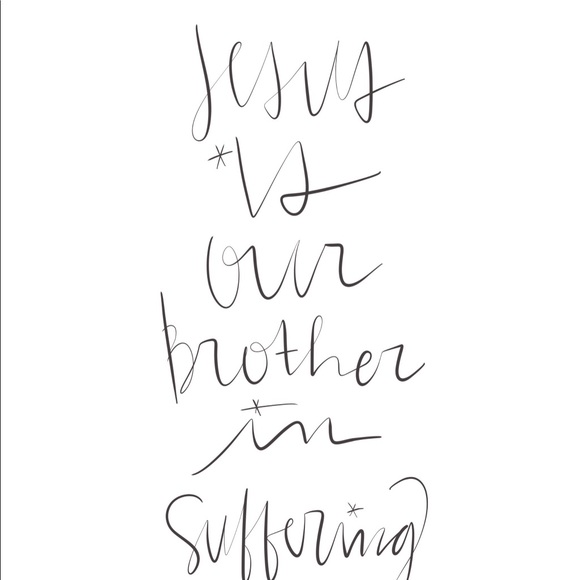 Jesus
is
our
brother
in
suffering